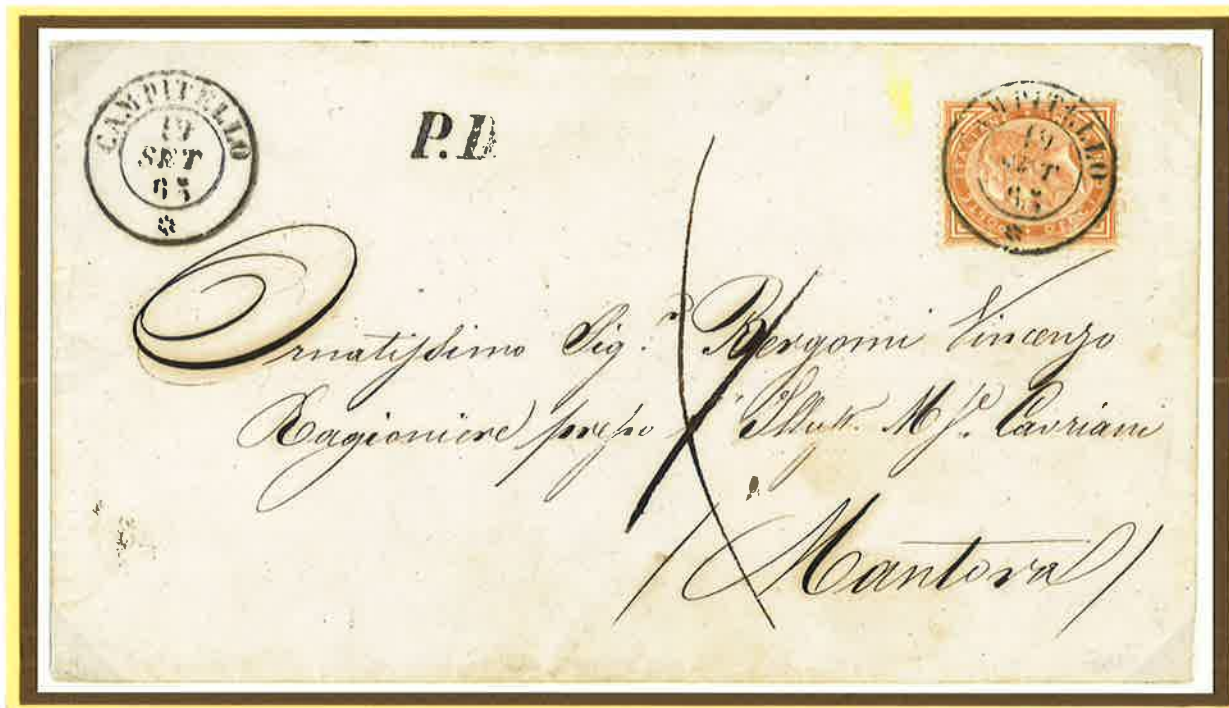 CAMPITELLO
19
SET
65
P.D
CAMPITELLO
19
SET
65
Ornatissimo Sig.r Bergomi Vincenzo
Ragioniere presso Illust. M.se Cavriani
Mantova